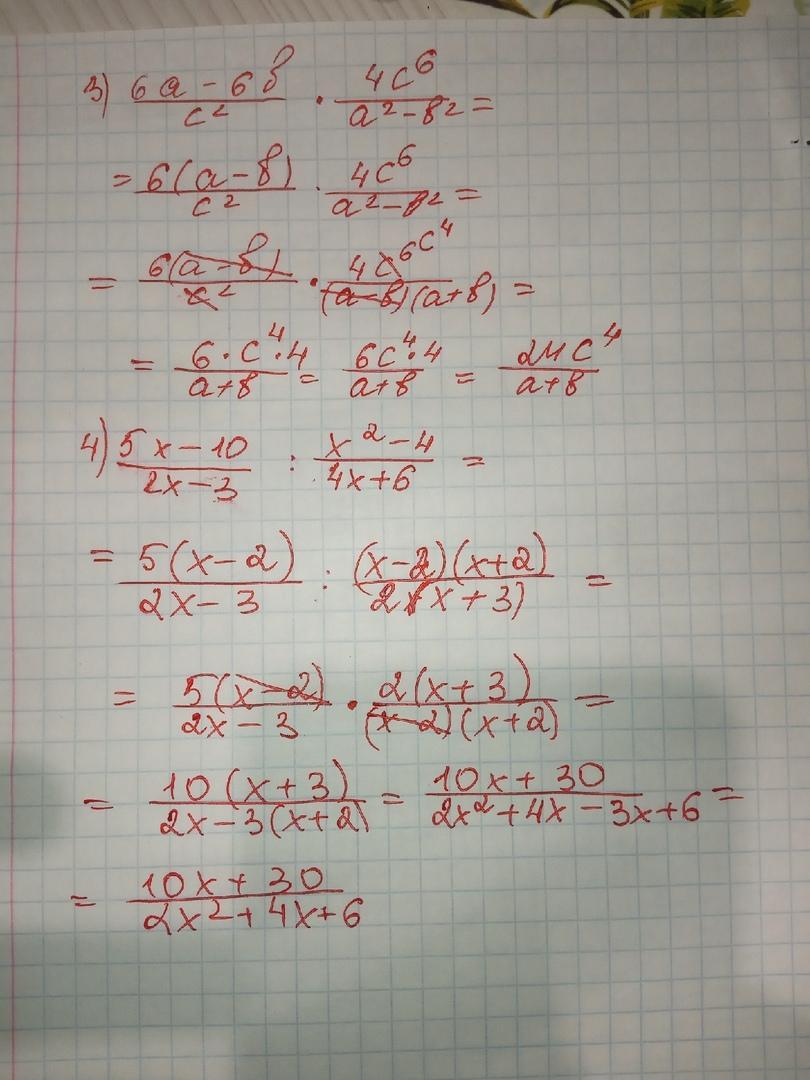 3) (6a - 6b)/c² · 4c⁶/(a² - b²) =
= 6(a - b)/c² · 4c⁶/(a² - b²) =
= 6(a - b)/c² · 4c⁶ c⁴/((a - b)(a + b)) =
= 6 · c⁴ · 4/(a + b) = 6c⁴ · 4/(a + b) = 24c⁴/(a + b)
4) (5x - 10)/(2x - 3) : (x² - 4)/(4x + 6) =
= 5(x - 2)/(2x - 3) : (x - 2)(x + 2)/(2(x + 3)) =
= 5(x - 2)/(2x - 3) · 2(x + 3)/((x - 2)(x + 2)) =
= 10(x + 3)/(2x - 3(x + 2)) = (10x + 30)/(2x² + 4x - 3x + 6) =
= (10x + 30)/(2x² + 4x + 6)